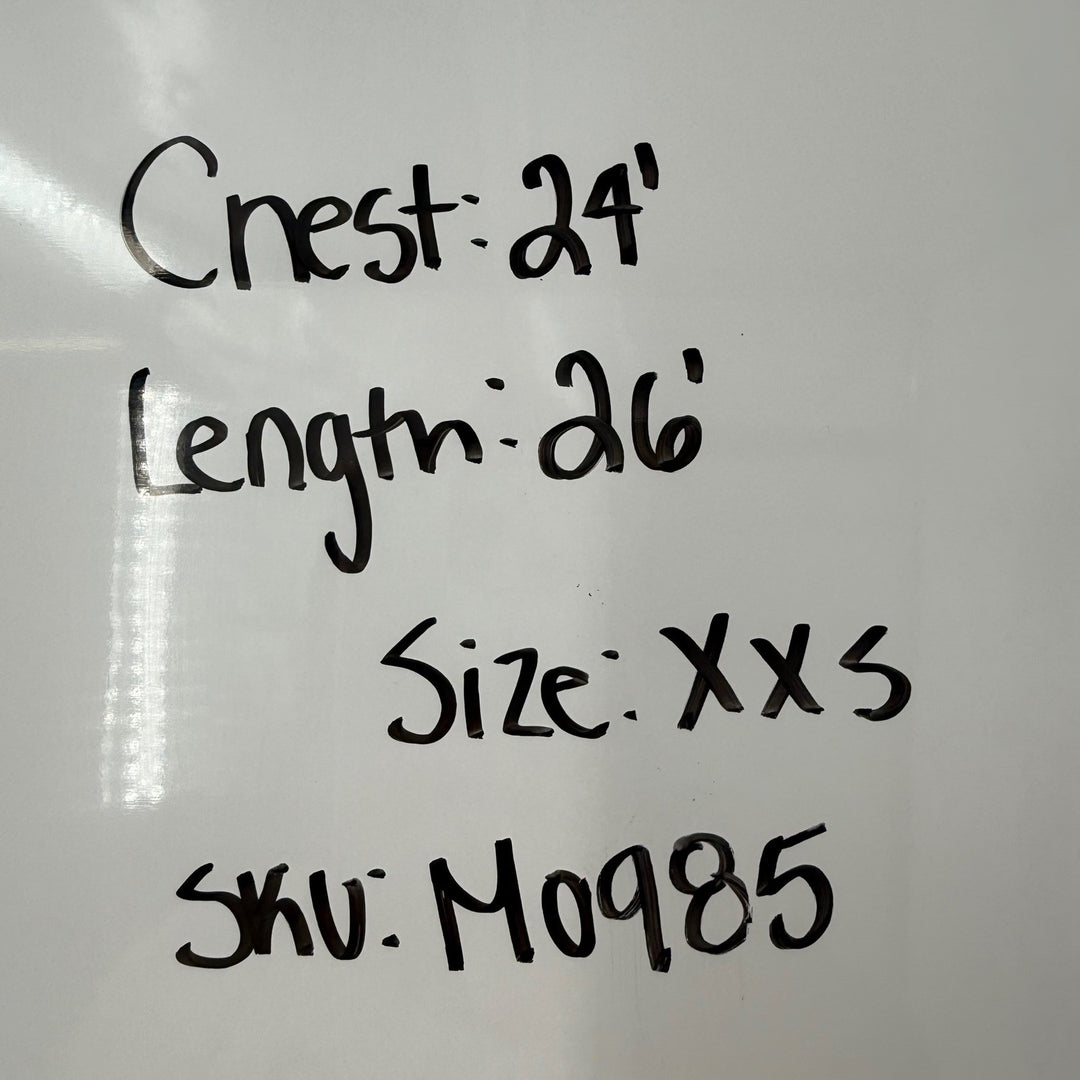 Chest: 24'
Length: 26'
Size: XXS
SKU: M0985